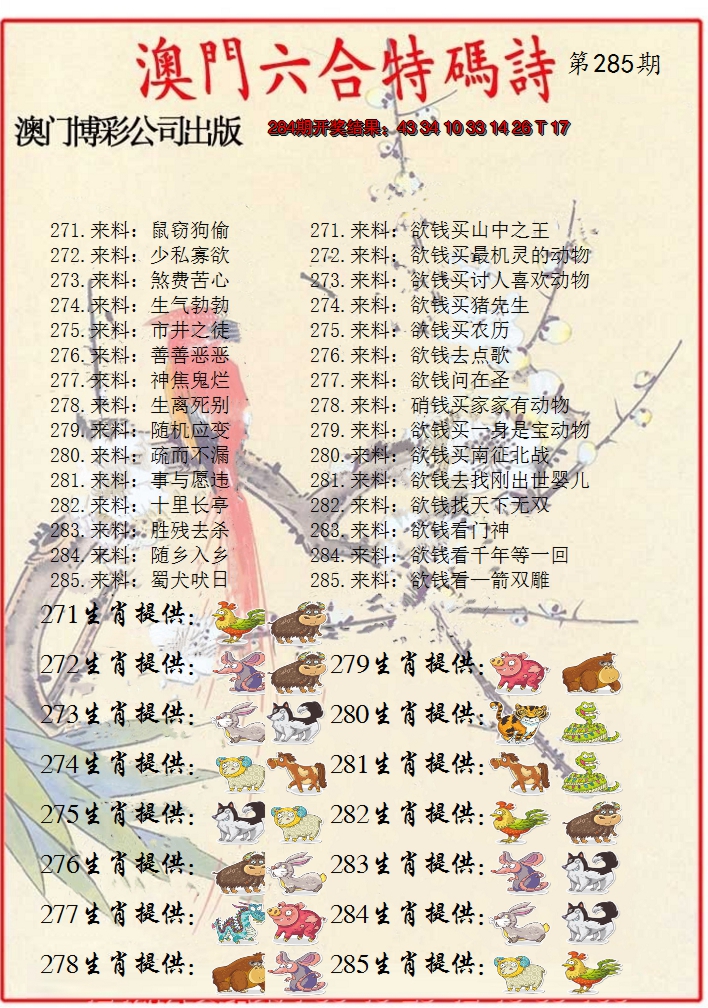 澳門六合特碼詩 第285期
澳门博彩公司出版 284期开奖结果：43 34 10 33 14 26 T 17
271.来料：鼠窃狗偷 271.来料：欲钱买山中之王
272.来料：少私寡欲 272.来料：欲钱买最机灵的动物
273.来料：煞费苦心 273.来料：欲钱买讨人喜欢动物
274.来料：生气勃勃 274.来料：欲钱买猪先生
275.来料：市井之徒 275.来料：欲钱买农历
276.来料：善善恶恶 276.来料：欲钱去点歌
277.来料：神焦鬼烂 277.来料：欲钱问在圣
278.来料：生离死别 278.来料：硝钱买家家有动物
279.来料：随机应变 279.来料：欲钱买一身是宝动物
280.来料：疏而不漏 280.来料：欲钱买南征北战
281.来料：事与愿违 281.来料：欲钱去找刚出世婴儿
282.来料：十里长亭 282.来料：欲钱找天下无双
283.来料：胜残去杀 283.来料：欲钱看门神
284.来料：随乡入乡 284.来料：欲钱看千年等一回
285.来料：蜀犬吠日 285.来料：欲钱看一箭双雕
271生肖提供：
272生肖提供： 279生肖提供：
273生肖提供： 280生肖提供：
274生肖提供： 281生肖提供：
275生肖提供： 282生肖提供：
276生肖提供： 283生肖提供：
277生肖提供： 284生肖提供：
278生肖提供： 285生肖提供：